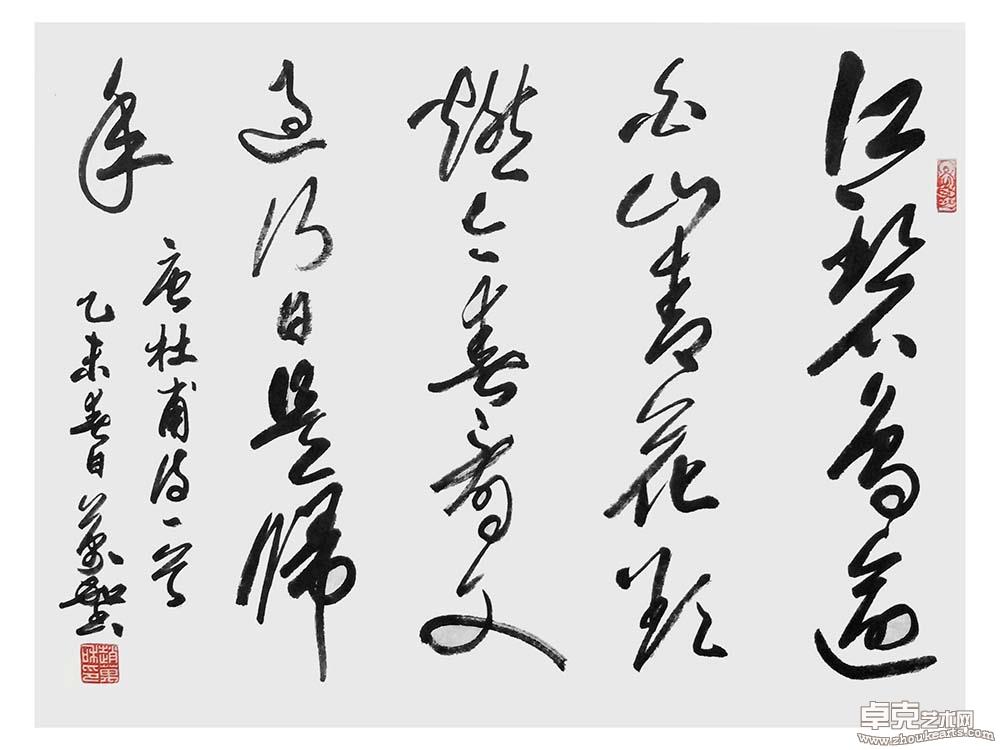 江碧鳥逾
白山青花欲
燃今春看又
過何日是歸
年
唐杜甫詩一首
乙未春日萬
卓克艺术网
www.zhoukearts.com